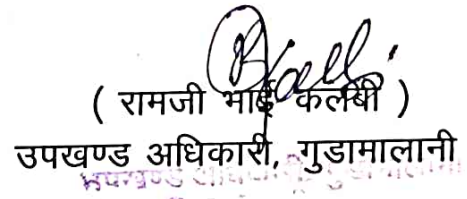 ( रामजी भाई कलबी )
उपखण्ड अधिकारी, गुडामालानी